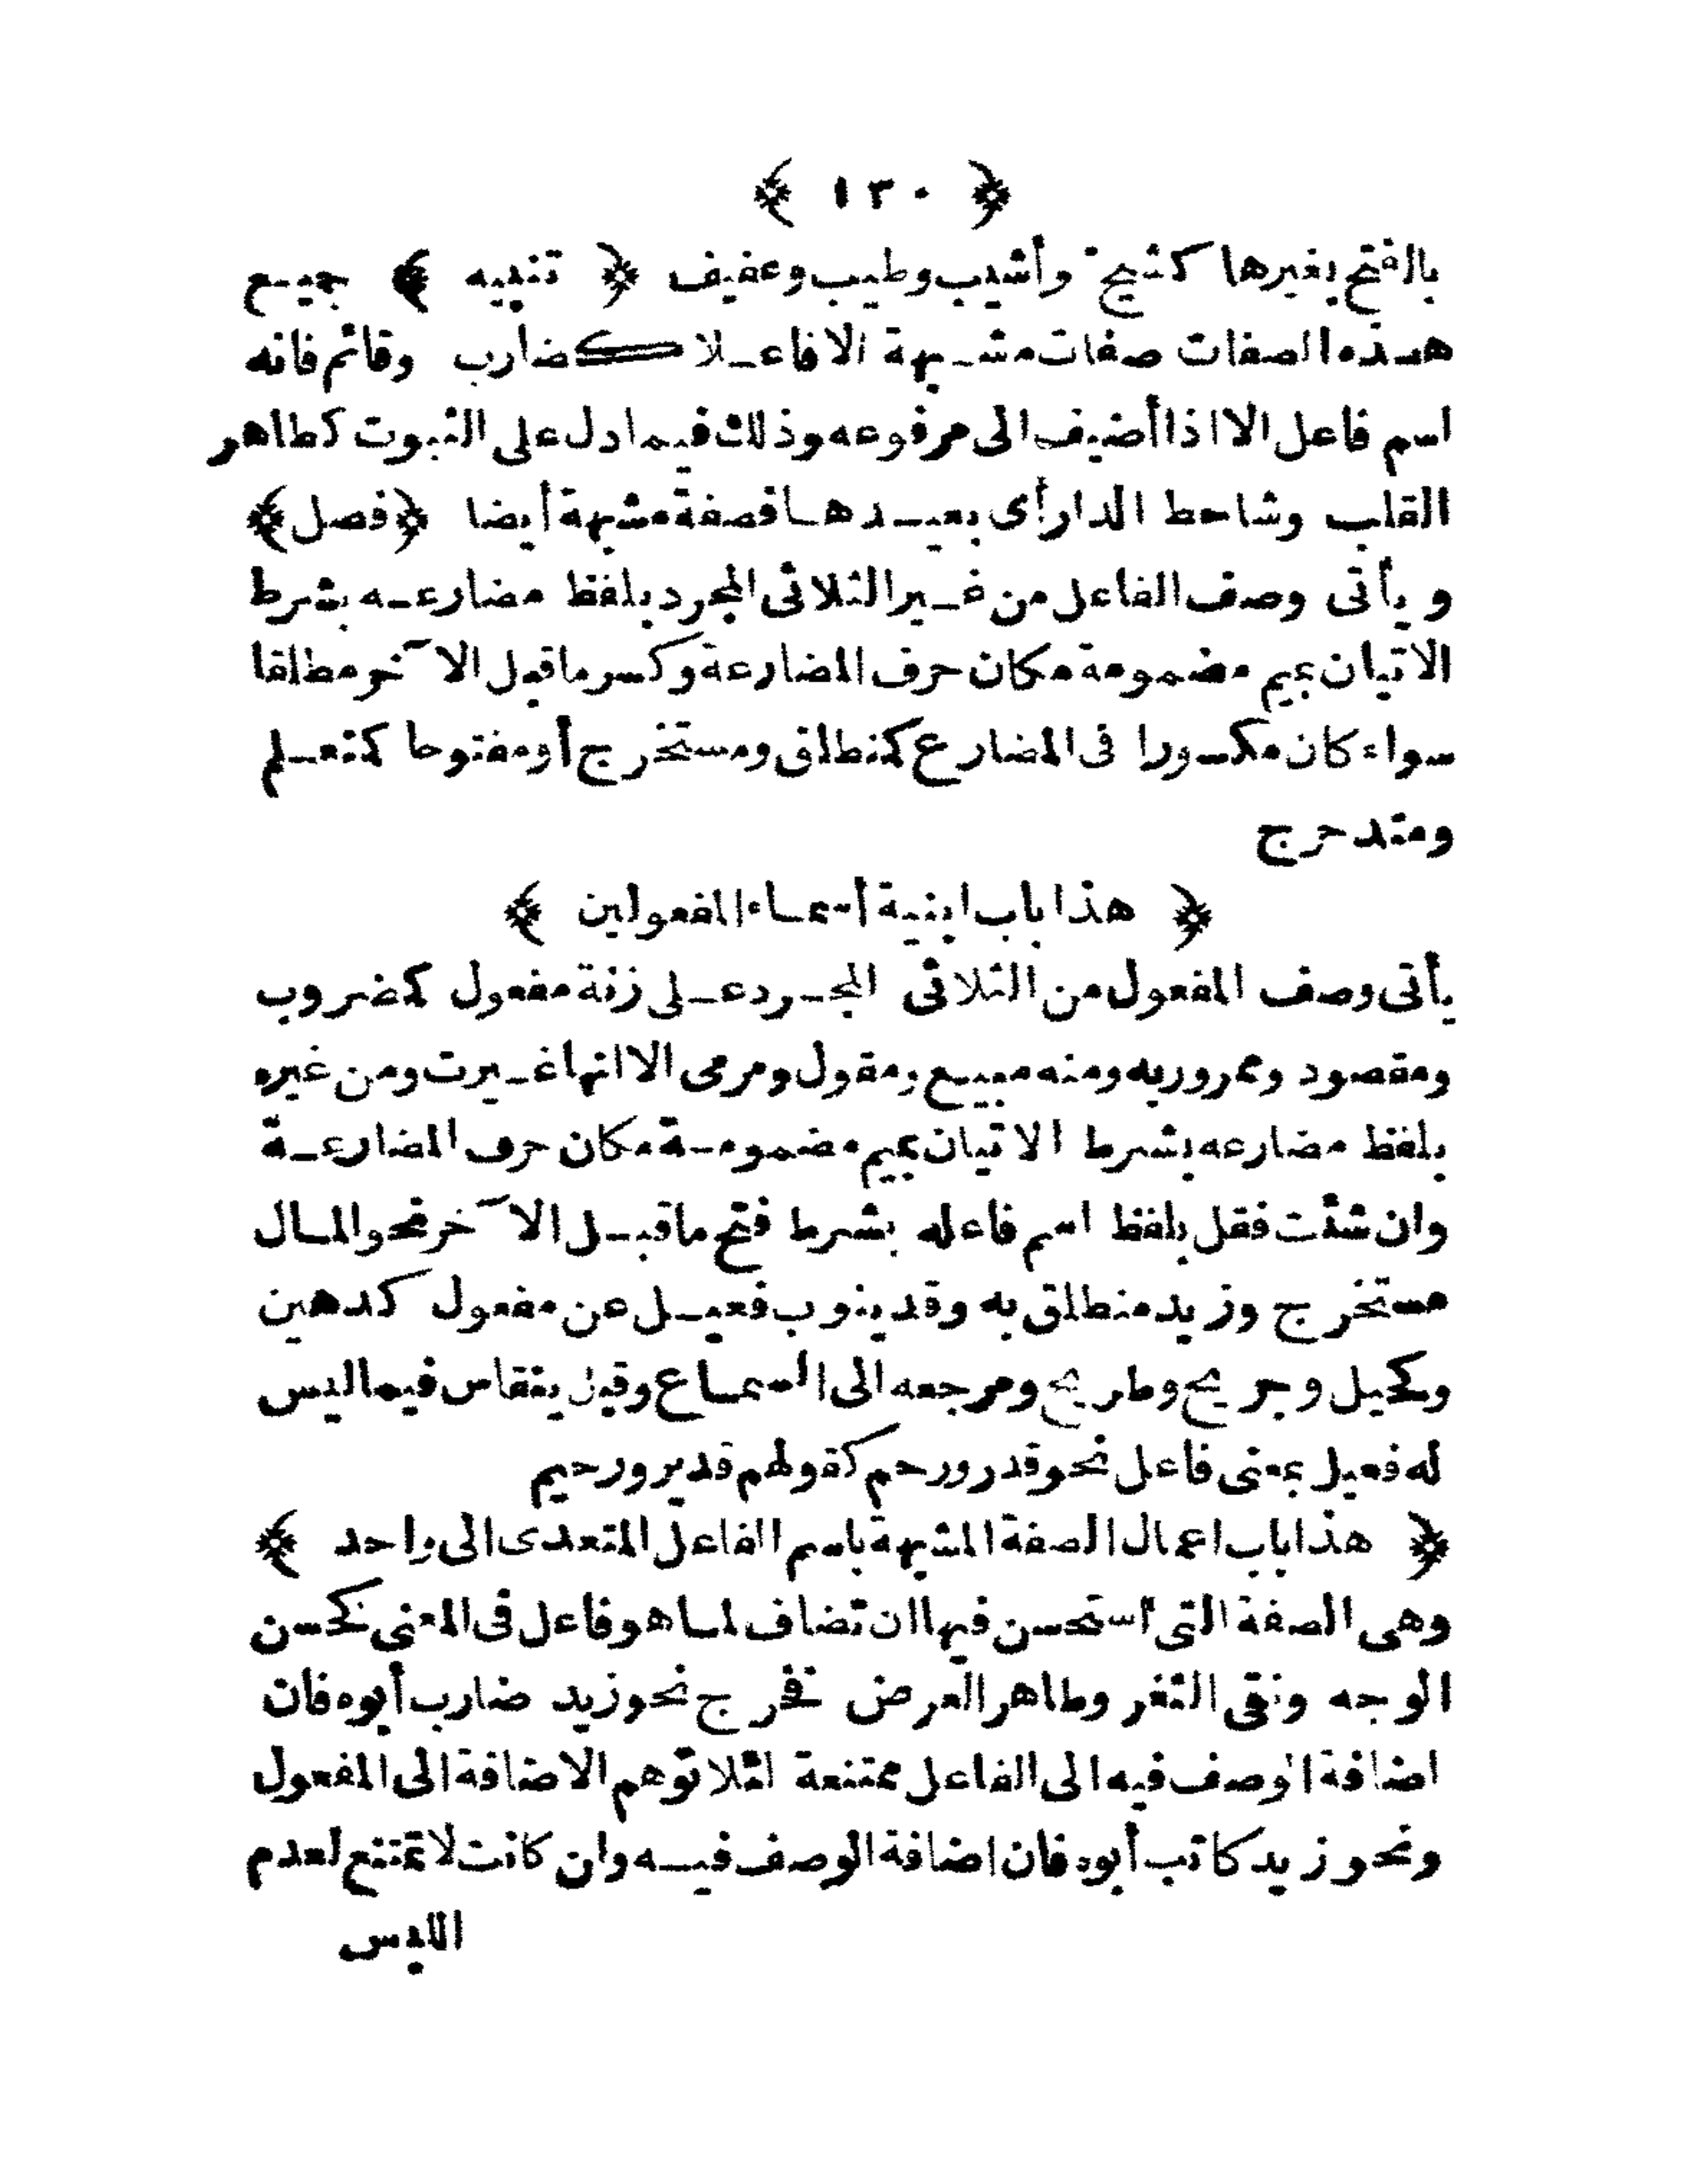 ﴿ ١٣٠ ﴾
بالفتح بغيرها كشيخ وأشيب وطيب وعفيف ﴿ تنبيه ﴾ جميع
هذه الصفات صفات مشبهة الا فاعلا كضارب وقائم فانه
اسم فاعل الا اذا أضيف الى مرفوعه وذلك فيما دل على الثبوت كطاهر
القلب وشاحط الدار أى بعيدها فصفة مشبهة أيضا ﴿ فصل ﴾
ويأتى وصف الفاعل من غير الثلاثى المجرد بلفظ مضارعه بشرط
الاتيان بميم مضمومة مكان حرف المضارعة وكسر ما قبل الآخر مطلقا
سواء كان مكسورا فى المضارع كمنطلق ومستخرج أو مفتوحا كمتعلم
ومتدحرج
﴿ هذا باب ابنية أسماء المفعولين ﴾
يأتى وصف المفعول من الثلاثى المجرد على زنة مفعول كمضروب
ومقصود وممرور به ومنه مبيع ومقول ومرمى الا انها غيرت ومن غيره
بلفظ مضارعه بشرط الاتيان بميم مضمومة مكان حرف المضارعة
وان شئت فقل بلفظ اسم فاعله بشرط فتح ما قبل الآخر نحو المال
مستخرج وزيد منطلق به وقد ينوب فعيل عن مفعول كدهين
وكحيل وجريح وطريح ومرجعه الى السماع وقيل ينقاس فيما ليس
له فعيل بمعنى فاعل نحو قدر ورحم كقولهم قدير ورحيم
﴿ هذا باب اعمال الصفة المشبهة باسم الفاعل المتعدى الى واحد ﴾
وهى الصفة التى استحسن فيها ان تضاف لما هو فاعل فى المعنى كحسن
الوجه ونقى الثغر وطاهر العرض فخرج نحو زيد ضارب أبوه فان
اضافة الوصف فيه الى الفاعل ممتنعة لئلا توهم الاضافة الى المفعول
ونحو زيد كاتب أبوه فان اضافة الوصف فيه وان كانت لا تمتنع لعدم
اللبس